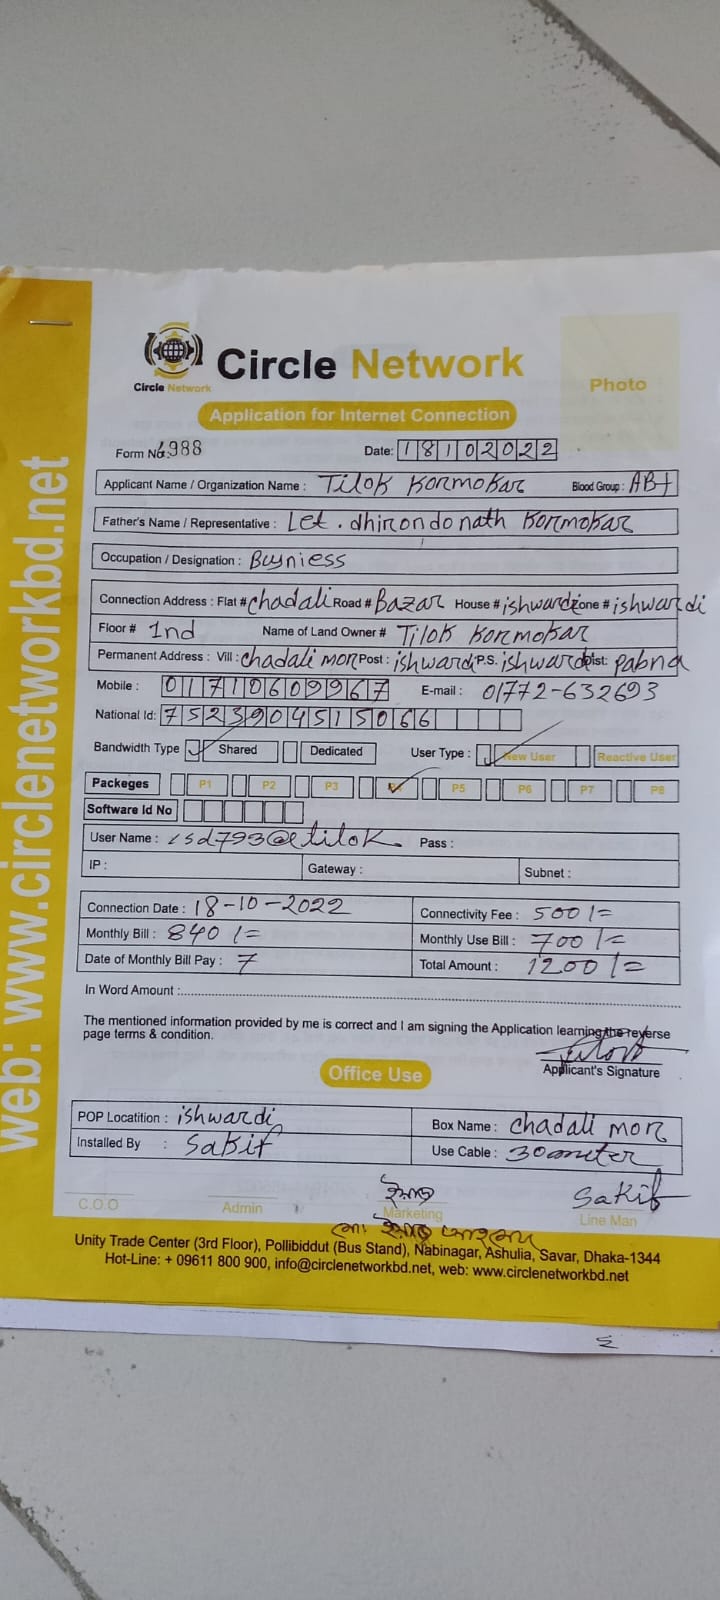 Circle Network
Circle Network
Photo
Application for Internet Connection
Form No: 1988 Date: 18102022
Applicant Name / Organization Name : Tilok Kormokar Blood Group : AB+
Father's Name / Representative : Let. dhirondonath Kormokar
Occupation / Designation : Buyniess
Connection Address : Flat # chadali Road # Bazar House # ishwardi Zone # ishwardi
Floor # 1nd Name of Land Owner # Tilok Kormokar
Permanent Address : Vill : chadali mor Post : ishwardi P.S. ishwardi Dist: pabna
Mobile : 01710609967 E-mail : 01772-632693
National Id: 7523904515066
Bandwidth Type Shared Dedicated User Type : New User Reactive User
Packeges P1 P2 P3 P4 P5 P6 P7 P8
Software Id No
User Name : isd793@tilok Pass :
IP : Gateway : Subnet :
Connection Date : 18-10-2022 Connectivity Fee : 500/=
Monthly Bill : 840/= Monthly Use Bill : 700/=
Date of Monthly Bill Pay : 7 Total Amount : 1200/=
In Word Amount :
The mentioned information provided by me is correct and I am signing the Application learning the reverse
page terms & condition.
Applicant's Signature
Office Use
POP Locatition : ishwardi Box Name : chadali mor
Installed By : Sakif Use Cable : 30 meter
Sakif
C.O.O Admin Marketing Line Man
Unity Trade Center (3rd Floor), Pollibiddut (Bus Stand), Nabinagar, Ashulia, Savar, Dhaka-1344
Hot-Line: + 09611 800 900, info@circlenetworkbd.net, web: www.circlenetworkbd.net
web: www.circlenetworkbd.net